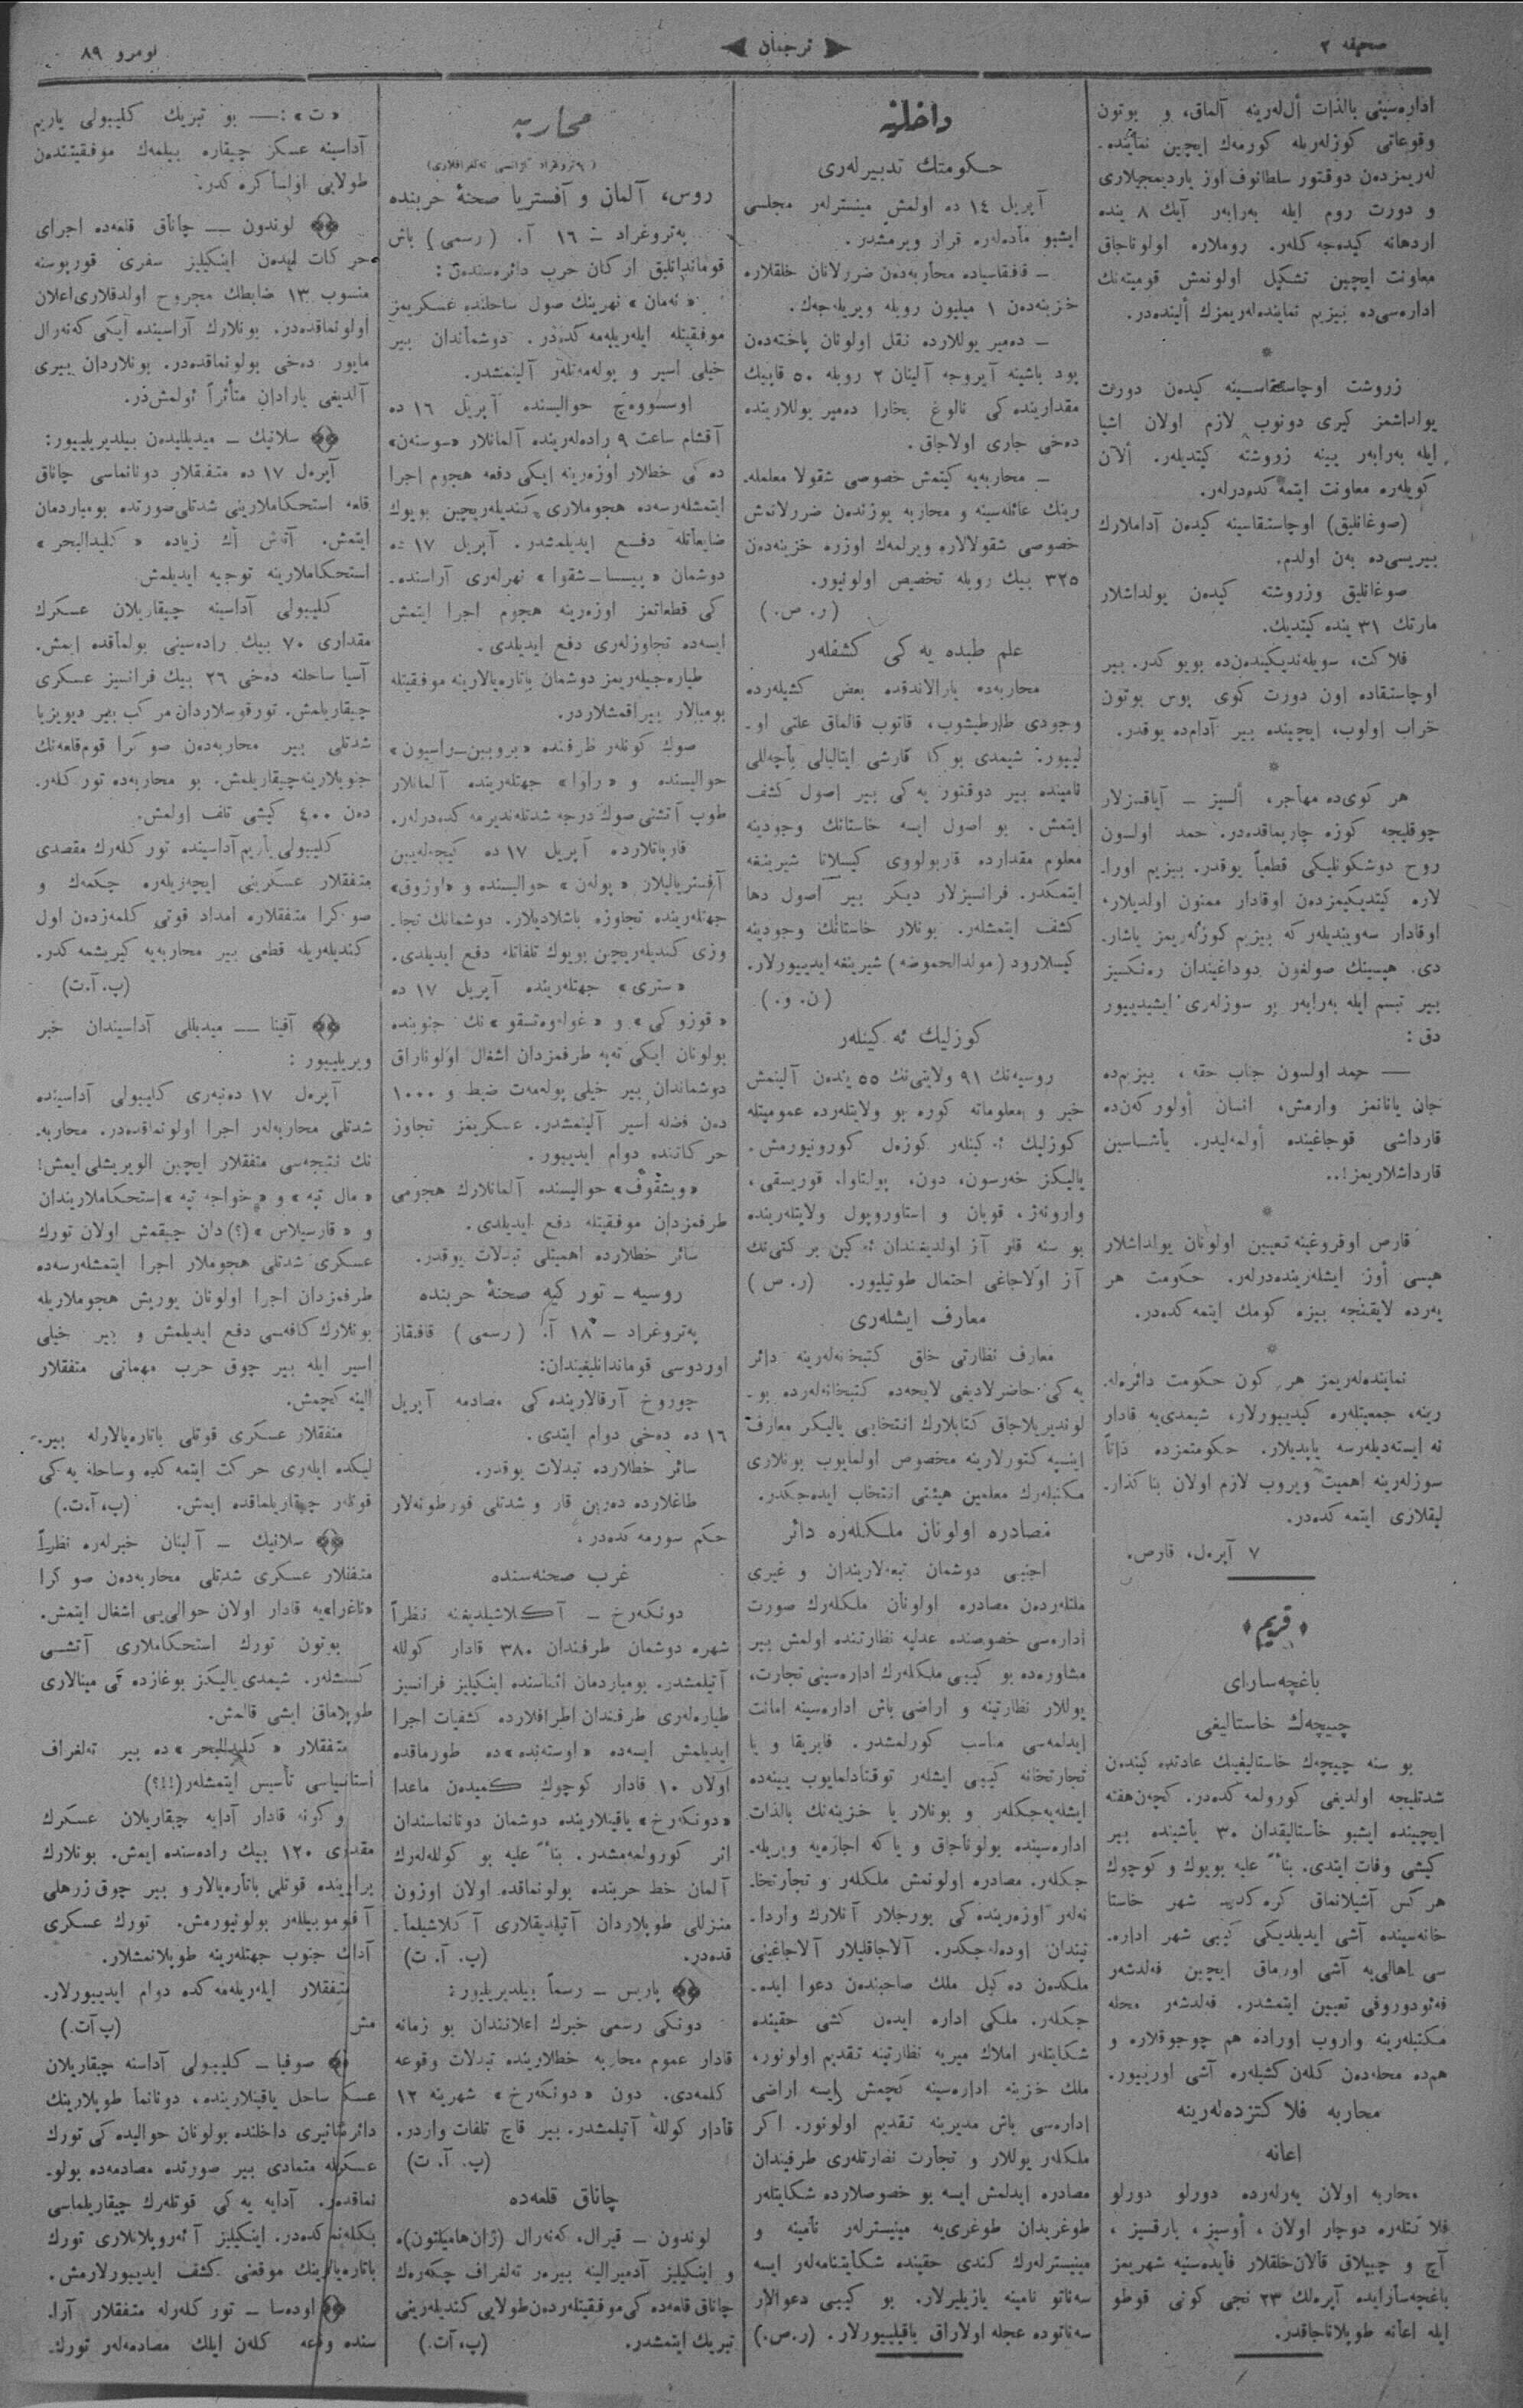 صحیفه ۲
ترجمان
نومرو ۸۹
اداره‌سینی بالذات أل‌لەرینه آلماق، و بوتون
وقوعاتی کوزلەریله کورمەك ایچین نماینده‌ـ
لەریمزدەن دوقتور سلطانوف اوز یاردیمجیلاری
و دورت روم ایله بەرابەر آیك ۸ ینده
اردهانه کیدەجەکلەر. روملاره اولوناجاق
معاونت ایچین تشکیل اولونمش قومیتەنك
اداره‌سی‌ده بیزیم نماینده‌لەریمزك ألینده‌در.
*
زروشت اوچاستقاسـینه کیدەن دورت
یولداشمز کیری دونوب لازم اولان اشیا
ایله بەرابەر یینه زروشته کیتدیلەر. ألآن
کویلەره معاونت ایتمه کده‌درلەر.
(صوغانلیق) اوچاستقاسینه کیدەن آداملارك
بیریسی‌ده بەن اولدم.
صوغانلیق وزروشته کیدەن یولداشلار
مارتك ۳۱ ینده کیتدیك.
فلاکت، سویلەندیکیندەن‌ده بویوکدر. بیر
اوچاستقاده اون دورت کوی بوس بوتون
خراب اولوب، ایچینده بیر آدام‌ده یوقدر.
*
هر کوی‌ده مهاجر، ألسیز ـ آیاقسزلار
چوقلیجه کوزه چارپماقده‌در. حمد اولسون
روح دوشکونلیکی قطعیاً یوقدر. بیزیم اوراـ
لاره کیتدیکیمزدەن اوقادار ممنون اولدیلار،
اوقادار سەویندیلەر که بیزیم کوزلەریمز یاشارـ
دی. هپسینك صولغون دوداغیندان رەنکسیز
بیر تبسم ایله بەرابەر بو سوزلەری ایشیدییور
دق :
— حمد اولسون جناب حقه ، بیزیم‌ده
جان یانانمز وارمش، انسان أولورکەن‌ده
قارداشی قوجاغینده أولمەلیدر. یاشـاسین
قارداشلاریمز!..
*
قارص اوقروغینه تعیین اولونان یولداشلار
هپسی أوز ایشلەرینده‌درلەر. حکومت هر
یەرده لایقنجه بیزه کومك ایتمه کده‌در.
*
نماینده‌لەریمز هر کون حکومت دائره‌لەـ
رینه، جمعیتلەره کیدییورلار، شیمدی‌یه قادار
نه ایستەدیلەرسه یاپدیلار. حکومتمزده ذاتاً
سوزلەرینه اهمیت ویروب لازم اولان بناکذارـ
لیقلاری ایتمه کده‌در.
۷ آپرەل، قارص.
قریم
باغچه‌سارای
چیچەك خاستالیغی
بو سنه چیچەك خاستالیغینك عادتدەن
شدتلیجه اولدیغی کورولمەکده‌در. کچەن هفته
ایچینده ایشبو خاستالیقدان ۳۰ یاشینده بیر
کیشی وفات ایتدی. بناءً علیه بویوك و کوچوك
هرکس آشیلانماق کرەکدر. شهر خاستا
خانه‌سینده آشی ایدیلدیکی کیبی شهر ادارەـ
سی اهالی‌یه آشی اورماق ایچین فەلدشەر
فەئودوروفی تعیین ایتمشدر. فەلدشەر محله
مکتبلەرینه واروب اوراده هم چوجوقلاره و
هم‌ده محله‌دەن کلەن کشیلەره آشی اورییور.
محاربه فلاکتزده‌لەرینه
اعانه
محاربه اولان یەرلەرده دورلو دورلو
فلاکتلەره دوچار اولان ، أوسیز، بارقسیز ،
آچ و چیپلاق قالان خلقلار فایده‌سینه شهریمز
باغچه‌سارایده آپرەلك ۲۳ نجی کونی قوطو
ایله اعانه طوپلاناجاقدر.
داخلیه
حکومتك تدبیرلەری
آپریل ۱۴ ده اولمش مینسترلەر مجلسی
ایشبو ماده‌لەره قرار ویرمشدر.
ـ قافقاسیاده محاربه‌دەن ضررلانان خلقلاره
خزینه‌دەن ۱ میلیون روبله ویریله‌جەك.
ـ دەمیر یوللارده نقل اولونان پاخته‌دەن
پود باشینه آیروجه آلینان ۲ روبله ۵۰ قاپیك
مقدارینده کی نالوغ بخارا دەمیر یوللارینده
دەخی جاری اولاجاق.
ـ محاربه‌یه کیتمش خصوصی شقولا معلملەـ
رینك عائله‌سینه و محاربه یوزندەن ضررلانمش
خصوصی شقولالاره ویرلمەك اوزره خزینه‌دەن
۳۲۵ بیك روبله تخصیص اولونیور.
(ر. ص.)
علم طبده یه کی کشفلەر
محاربه‌ده یارالاندقده بعض کشیلەرده
وجودی طارطیشوب، قاتوب قالماق علتی اوـ
لییور. شیمدی بوکا قارشی ایتالیالی پاچەللی
نامینده بیر دوقتور یه کی بیر اصول کشف
ایتمش. بو اصول ایسه خاستانك وجودینه
معلوم مقدارده قاربولووی کیسلاتا شیرینغه
ایتمکدر. فرانسیزلار دیکر بیر اصول دها
کشف ایتمشلەر. بونلار خاستانك وجودینه
کیسلارود (مولدالحموضه) شیرینغه ایدییورلار.
(ن. و.)
کوزلیك ئه کینلەر
روسیه‌نك ۹۱ ولایتی‌نك ۵۵ یندەن آلینمش
خبر و معلوماته کوره بو ولایتلەرده عمومیتله
کوزلیك ئه کینلەر کوزەل کورونیورمش.
یالیکز خەرسون، دون، پولتاوا، قوریسقی،
وارونەژ، قوبان و استاوروپول ولایتلەرینده
بو سنه قار آز اولدیغیندان ئه کین برکتی‌نك
آز اولاجاغی احتمال طوتیلیور. (ر. ص)
معارف ایشلەری
معارف نظارتی خلق کتبخانه‌لەرینه دائر
یه کی حاضرلادیغی لایحه‌ده کتبخانه‌لەرده بوـ
لوندیریلاجاق کتابلارك انتخابی یالیکز معارف
اینسپه کتورلارینه مخصوص اولمایوب بونلاری
مکتبلەرك معلمین هیئتی انتخاب ایده‌جکدر.
مصادره اولونان ملکلەره دائر
اجنبی دوشمان تبعه‌لاریندان و غیری
ملتلەردەن مصادره اولونان ملکلەرك صورت
اداره‌سی خصوصنده عدلیه نظارتنده اولمش بیر
مشاوره‌ده بو کیبی ملکلەرك اداره‌سینی تجارت،
یوللار نظارتینه و اراضی باش اداره‌سینه امانت
ایدلمه‌سی مناسب کورلمشدر. فابریقا و یا
تجارتخانه کیبی ایشلەر توقتادلمایوب یینه‌ده
ایشله‌یه‌جکلەر و بونلار یا خزینه‌نك بالذات
اداره‌سینده بولوناجاق و یاکه اجاره‌یه ویریله‌ـ
جکلەر. مصادره اولونمش ملکلەر و تجارتخاـ
نه‌لەر اوزەرینده کی بورجلار آنلارك وارداـ
تیندان اوده‌له‌جکدر. آلاجاقلیلار آلاجاغینی
ملکدەن ده کیل ملك صاحبندەن دعوا ایده‌ـ
جکلەر. ملکی اداره ایدەن کشی حقینده
شکایتلەر املاك میریه نظارتینه تقدیم اولونور،
ملك خزینه اداره‌سینه کچمش ایسه اراضی
اداره‌سی باش مدیرینه تقدیم اولونور. اکر
ملکلەر یوللار و تجارت نظارتلەری طرفیندان
مصادره ایدلمش ایسه بو خصوصلارده شکایتلەر
طوغریدان طوغری‌یه مینیسترلەر نامینه و
مینیسترلەرك کندی حقینده شکایتنامه‌لەر ایسه
سه‌ناتو نامینه یازیلیرلار. بو کیبی دعوالار
سه‌ناتوده عجله اولاراق باقیلییورلار. (ر.ص.)
محاربه
(پەتروغراد آژانسی تەلغرافلاری)
روس، آلمان و آفستریا صحنۀ حربنده
پەتروغراد ـ ۱۶ آ. (رسمی) باش
قوماندانلیق ارکان حرب دائره‌سندەن:
«نەمان» نهرینك صول ساحلنده عسکریمز
موفقیتله ایلەریلەمه کده‌در. دوشماندان بیر
خیلی اسیر و پولەمەتلەر آلینمشدر.
اوستووەچ حوالیسنده آپریل ۱۶ ده
آقشام ساعت ۹ راده‌لەرینده آلمانلار «سوسنەن»
ده کی خطلار اوزەرینه ایکی دفعه هجوم اجرا
ایتمشلەرسه‌ده هجوملاری کندیلەریچین بویوك
ضایعاتله دفـع ایدیلمشدر. آپریل ۱۷ ده
دوشمان «پیسسا ـ شقوا» نهرلەری آراسنده‌ـ
کی قطعاتمز اوزەرینه هجوم اجرا ایتمش
ایسه‌ده تجاوزلەری دفع ایدیلدی.
طیاره‌جیلەریمز دوشمان باتاره‌یالارینه موفقیتله
بومبالار بیراقمشلاردر.
صوك کونلەر ظرفنده
حوالیسنده و «راوا» جهتلەرینده آلمانلار
طوپ آتشنی صوك درجه شدتلەندیرمه کده‌درلەر.
قارپاتلارده آپریل ۱۷ ده کیجه‌لەیین
آفستریالیلار «پولەن» حوالیسنده و «اوزوق»
جهتلەرینده تجاوزه باشلادیلار. دوشمانك تجاـ
وزی کندیلەریچین بویوك تلفاتله دفع ایدیلدی.
«ستری» جهتلەرینده آپریل ۱۷ ده
نك جنوبنده
بولونان ایکی تەپه طرفمزدان اشغال اولوناراق
دوشماندان بیر خیلی پولەمەت ضبط و ۱۰۰۰
دەن فضله اسیر آلینمشدر. عسکریمز تجاوز
حرکاتنده دوام ایدییور.
«ویشقوف» حوالیسنده آلمانلارك هجومی
طرفمزدان موفقیتله دفع ایدیلدی.
سائر خطلارده اهمیتلی تبدلات یوقدر.
روسیه ـ تورکیه صحنۀ حربنده
پەتروغراد ـ ۱۸ آ. (رسمی) قافقاز
اوردوسی قوماندانلیغیندان:
چوروخ آرقالارینده کی مصادمه آپریل
۱۶ ده دەخی دوام ایتدی.
سائر خطلارده تبدلات یوقدر.
طاغلارده دەرین قار و شدتلی فورطونه‌لار
حکم سورمه کده‌در.
غرب صحنه‌سنده
دونکەرخ ـ آکلاشیلدیغنه نظراً
شهره دوشمان طرفندان ۳۸۰ قادار کولله
آتیلمشدر. بومباردمان اثناسنده اینکیلیز فرانسیز
طیاره‌لەری طرفندان اطرافلارده کشفیات اجرا
ایدیلمش ایسه‌ده «اوستەنده» ده طورماقده
اولان ۱۰ قادار کوچوك کمیدەن ماعدا
«دونکەرخ» یاقینلارینده دوشمان دونانماسندان
اثر کورولمەمشدر. بناءً علیه بو کوللەلەرك
آلمان خط حربنده بولونماقده اولان اوزون
منزللی طوپلاردان آتیلدیقلاری آکلاشیلماـ
قده‌در. (پ. آ. ت)
پاریس ـ رسماً بیلدیریلیور:
دونکی رسمی خبرك اعلانندان بو زمانه
قادار عموم محاربه خطلارینده تبدلات وقوعه
کلمەدی. دون «دونکەرخ» شهرینه ۱۲
قادار کولله آتیلمشدر. بیر قاچ تلفات واردر.
(پ. آ. ت)
چاناق قلعه‌ده
لوندون ـ قیرال، کەنەرال (ژان‌هامیلتون)ه
و اینکیلیز آدمیرالینه بیرەر تەلغراف چکەرەك
چاناق قلعه‌ده کی موفقیتلەردەن طولایی کندیلەرینی
تبریك ایتمشدر. (پ. آ.ت.)
«ت»: — بو تبریك کلیبولی یاریم
آداسینه عسکر چیقاره بیلمەك موفقیتندەن
طولایی اولسا کرەکدر.
لوندون — چاناق قلعه‌ده اجرای
حرکات ایدەن اینکیلیز سفری قورپوسنه
منسوب ۱۳ ضابطك مجروح اولدقلاری اعلان
اولونماقده‌در. بونلارك آراسینده ایکی کەنەرال
مایور دەخی بولونماقده‌در. بونلاردان بیری
آلدیغی یارادان متأثراً ئولمش‌در.
سلانیك ـ میدیللیدەن بیلدیریلییور:
آپرەل ۱۷ ده متفقلار دونانماسی چاناق
قلعه استحکاملارینی شدتلی صورتده بومباردمان
ایتمش. آتش أك زیاده «کلیدالبحر»
استحکاملارینه توجیه ایدیلمش
کلیبولی آداسینه چیقاریلان عسکرك
مقداری ۷۰ بیك راده‌سینی بولماقده ایمش.
آسیا ساحلنه دەخی ۲۶ بیك فرانسیز عسکری
چیقاریلمش. تورقوسلاردان مرکب بیر دیویزیا
شدتلی بیر محاربه‌دەن صوکرا قوم‌قلعه‌نك
جنوبلارینه چیقاریلمش. بو محاربه‌ده تورکلەرـ
دەن ۴۰۰ کیشی تلف اولمش.
کلیبولی یاریم آداسینده تورکلەرك مقصدی
متفقلار عسکرینی ایچەریلەره چکمەك و
صوکرا متفقلاره امداد قوتی کلمەزدەن اول
کندیلەریله قطعی بیر محاربه‌یه کیریشمەکدر.
(پ. آ.ت)
آفینا — میدیللی آداسیندان خبر
ویریلییور:
آپرەل ۱۷ دەنبەری کلیبولی آداسینده
شدتلی محاربه‌لەر اجرا اولونماقده‌در. محاربه‌ـ
نك نتیجه‌سی متفقلار ایچین الویریشلی ایمش!
«مال تپه» و «خواجه تپه» استحکاملاریندان
و «قارسیلاس» (؟) دان چیقمش اولان تورك
عسکری شدتلی هجوملار اجرا ایتمشلەرسه‌ده
طرفمزدان اجرا اولونان یوریش هجوملاریله
بونلارك کافه‌سی دفع ایدیلمش و بیر خیلی
اسیر ایله بیر چوق حرب مهماتی متفقلار
الینه کچمش.
متفقلار عسکری قوتلی باتاره‌یالارله بیرـ
لیکده ایلەری حرکت ایتمه کده وساحله یه کی
قوتلەر چیقاریلماقده ایمش. (پ. آ.ت.)
سلانیك ـ آلینان خبرلەره نظراً
متفقلار عسکری شدتلی محاربه‌دەن صوکرا
«ناغرا»یه قادار اولان حوالی‌یی اشغال ایتمش.
بوتون تورك استحکاملاری آتشـی
کسمشلەر. شیمدی یالیکز بوغازده کی مینالاری
طوپلاماق ایشی قالمش.
متفقلار «کلیدالبحر» ده بیر تەلغراف
استانسیاسی تأسیس ایتمشلەر(!!؟)
کونه قادار آدایه چیقاریلان عسکرك
مقداری ۱۲۰ بیك راده‌سنده ایمش. بونلارك
قوتلی باتاره‌یالار و بیر چوق زرهلی
آفتوموبیللەر بولونیورمش. تورك عسکری
آدانك جنوب جهتلەرینه طوپلانمشلار.
متفقلار ایلەریلەمه کده دوام ایدییورلار.
مش (پ آ.ت.)
صوفیا ـ کلیبولی آداسنه چیقاریلان
عسکر ساحل یاقینلارینده، دونانما طوپلارینك
دائره تاثیری داخلنده بولونان حوالیده کی تورك
عسکریله متمادی بیر صورتده مصادمه‌ده بولوـ
نماقده‌در. آدایه یه کی قوتلەرك چیقاریلماسی
بکلەنمه کده‌در. اینکیلیز آئەروپلانلاری تورك
باتاره‌یالارینك موقعنی کشف ایدییورلارمش.
اوده‌سا ـ تورکلەرله متفقلار آراـ
سنده وقعه کلەن ایلك مصادمه‌لەر تورك